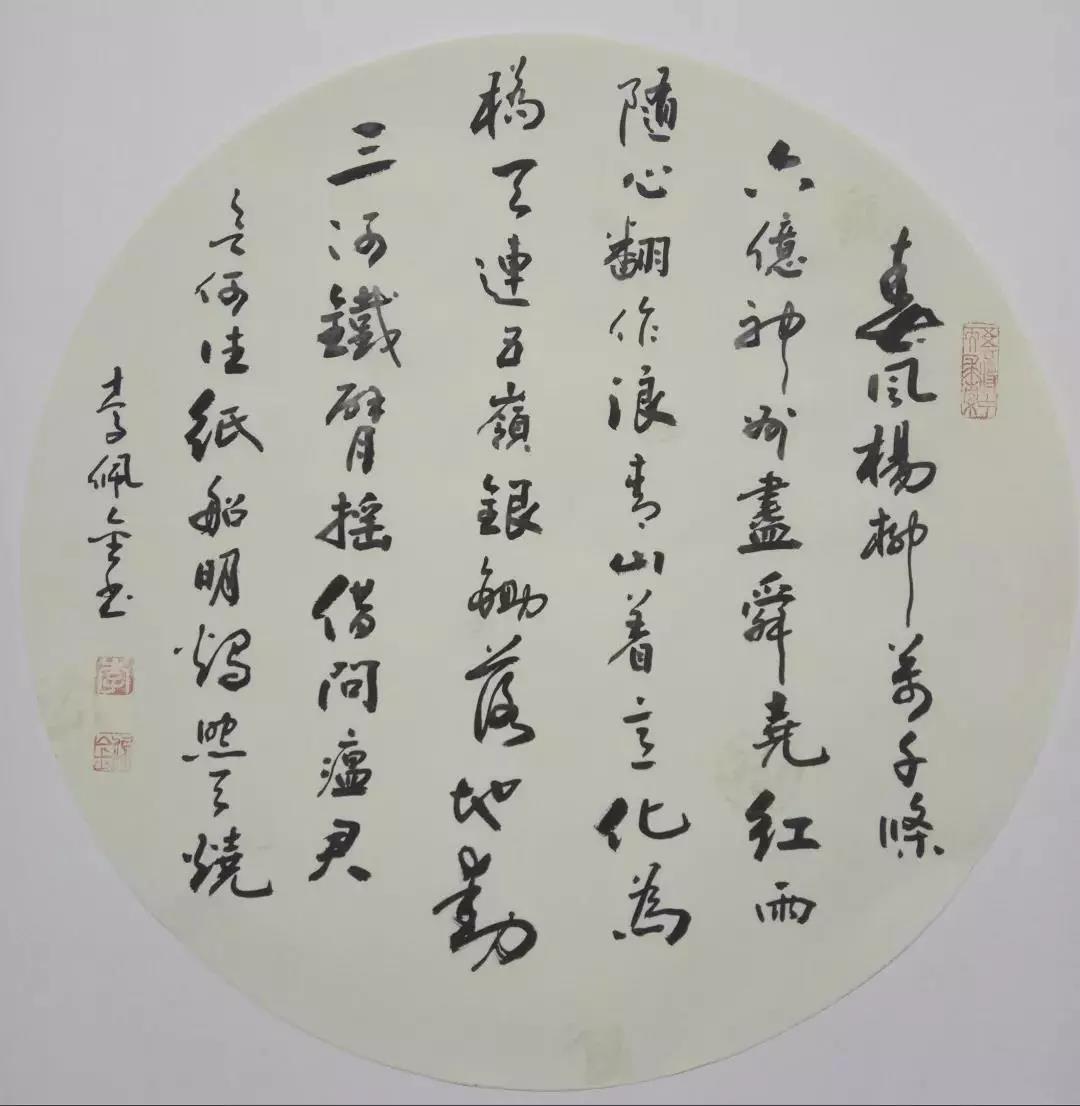 春風楊柳萬千條
六億神州盡舜堯紅雨
隨心翻作浪青山着意化為
橋天連五嶺銀鋤落地動
三河鐵臂摇借問瘟君
欲何往紙船明燭照天燒
李佩金书